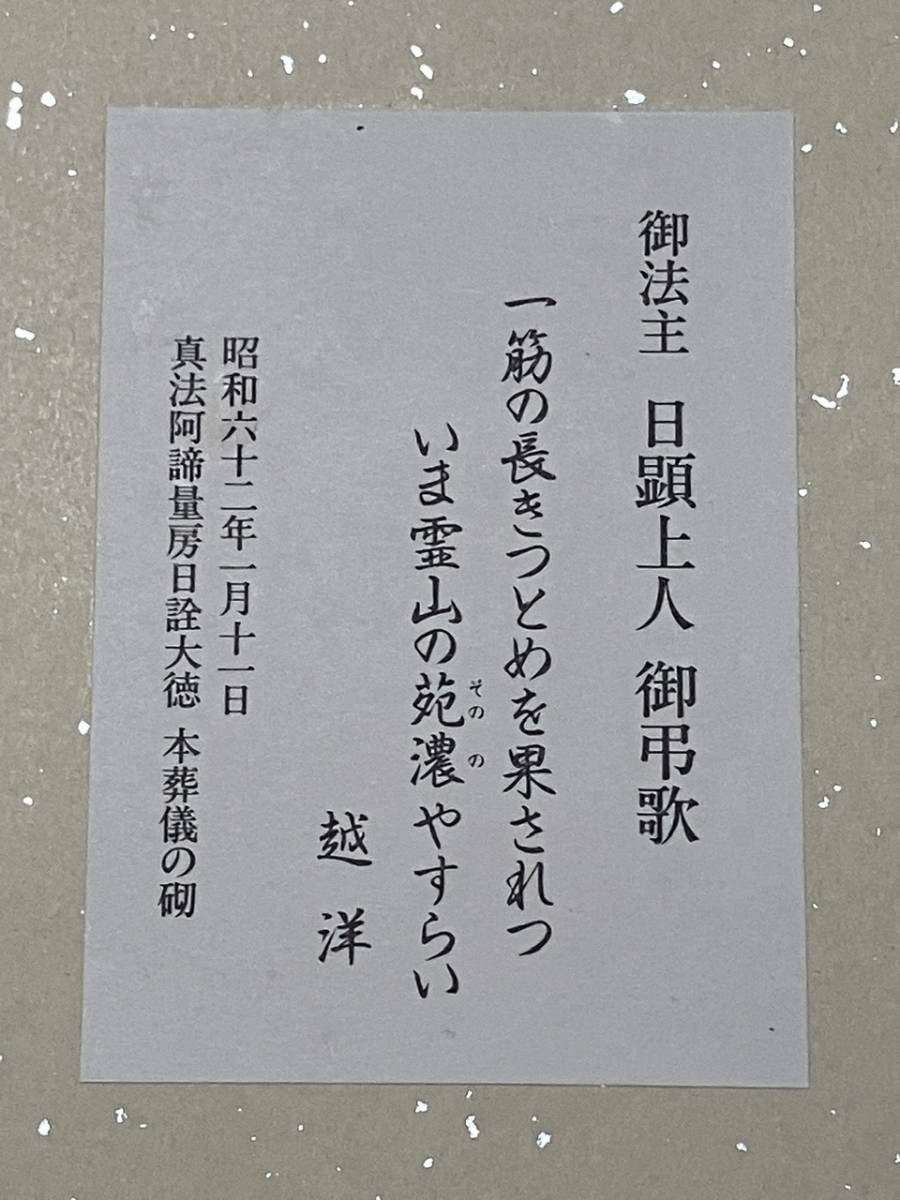 御法主 日顕上人 御弔歌
一筋の長きつとめを果されつ
いま霊山の苑濃やすらい
そのの
越洋
昭和六十二年一月十一日
真法阿諦量房日詮大徳 本葬儀の砌